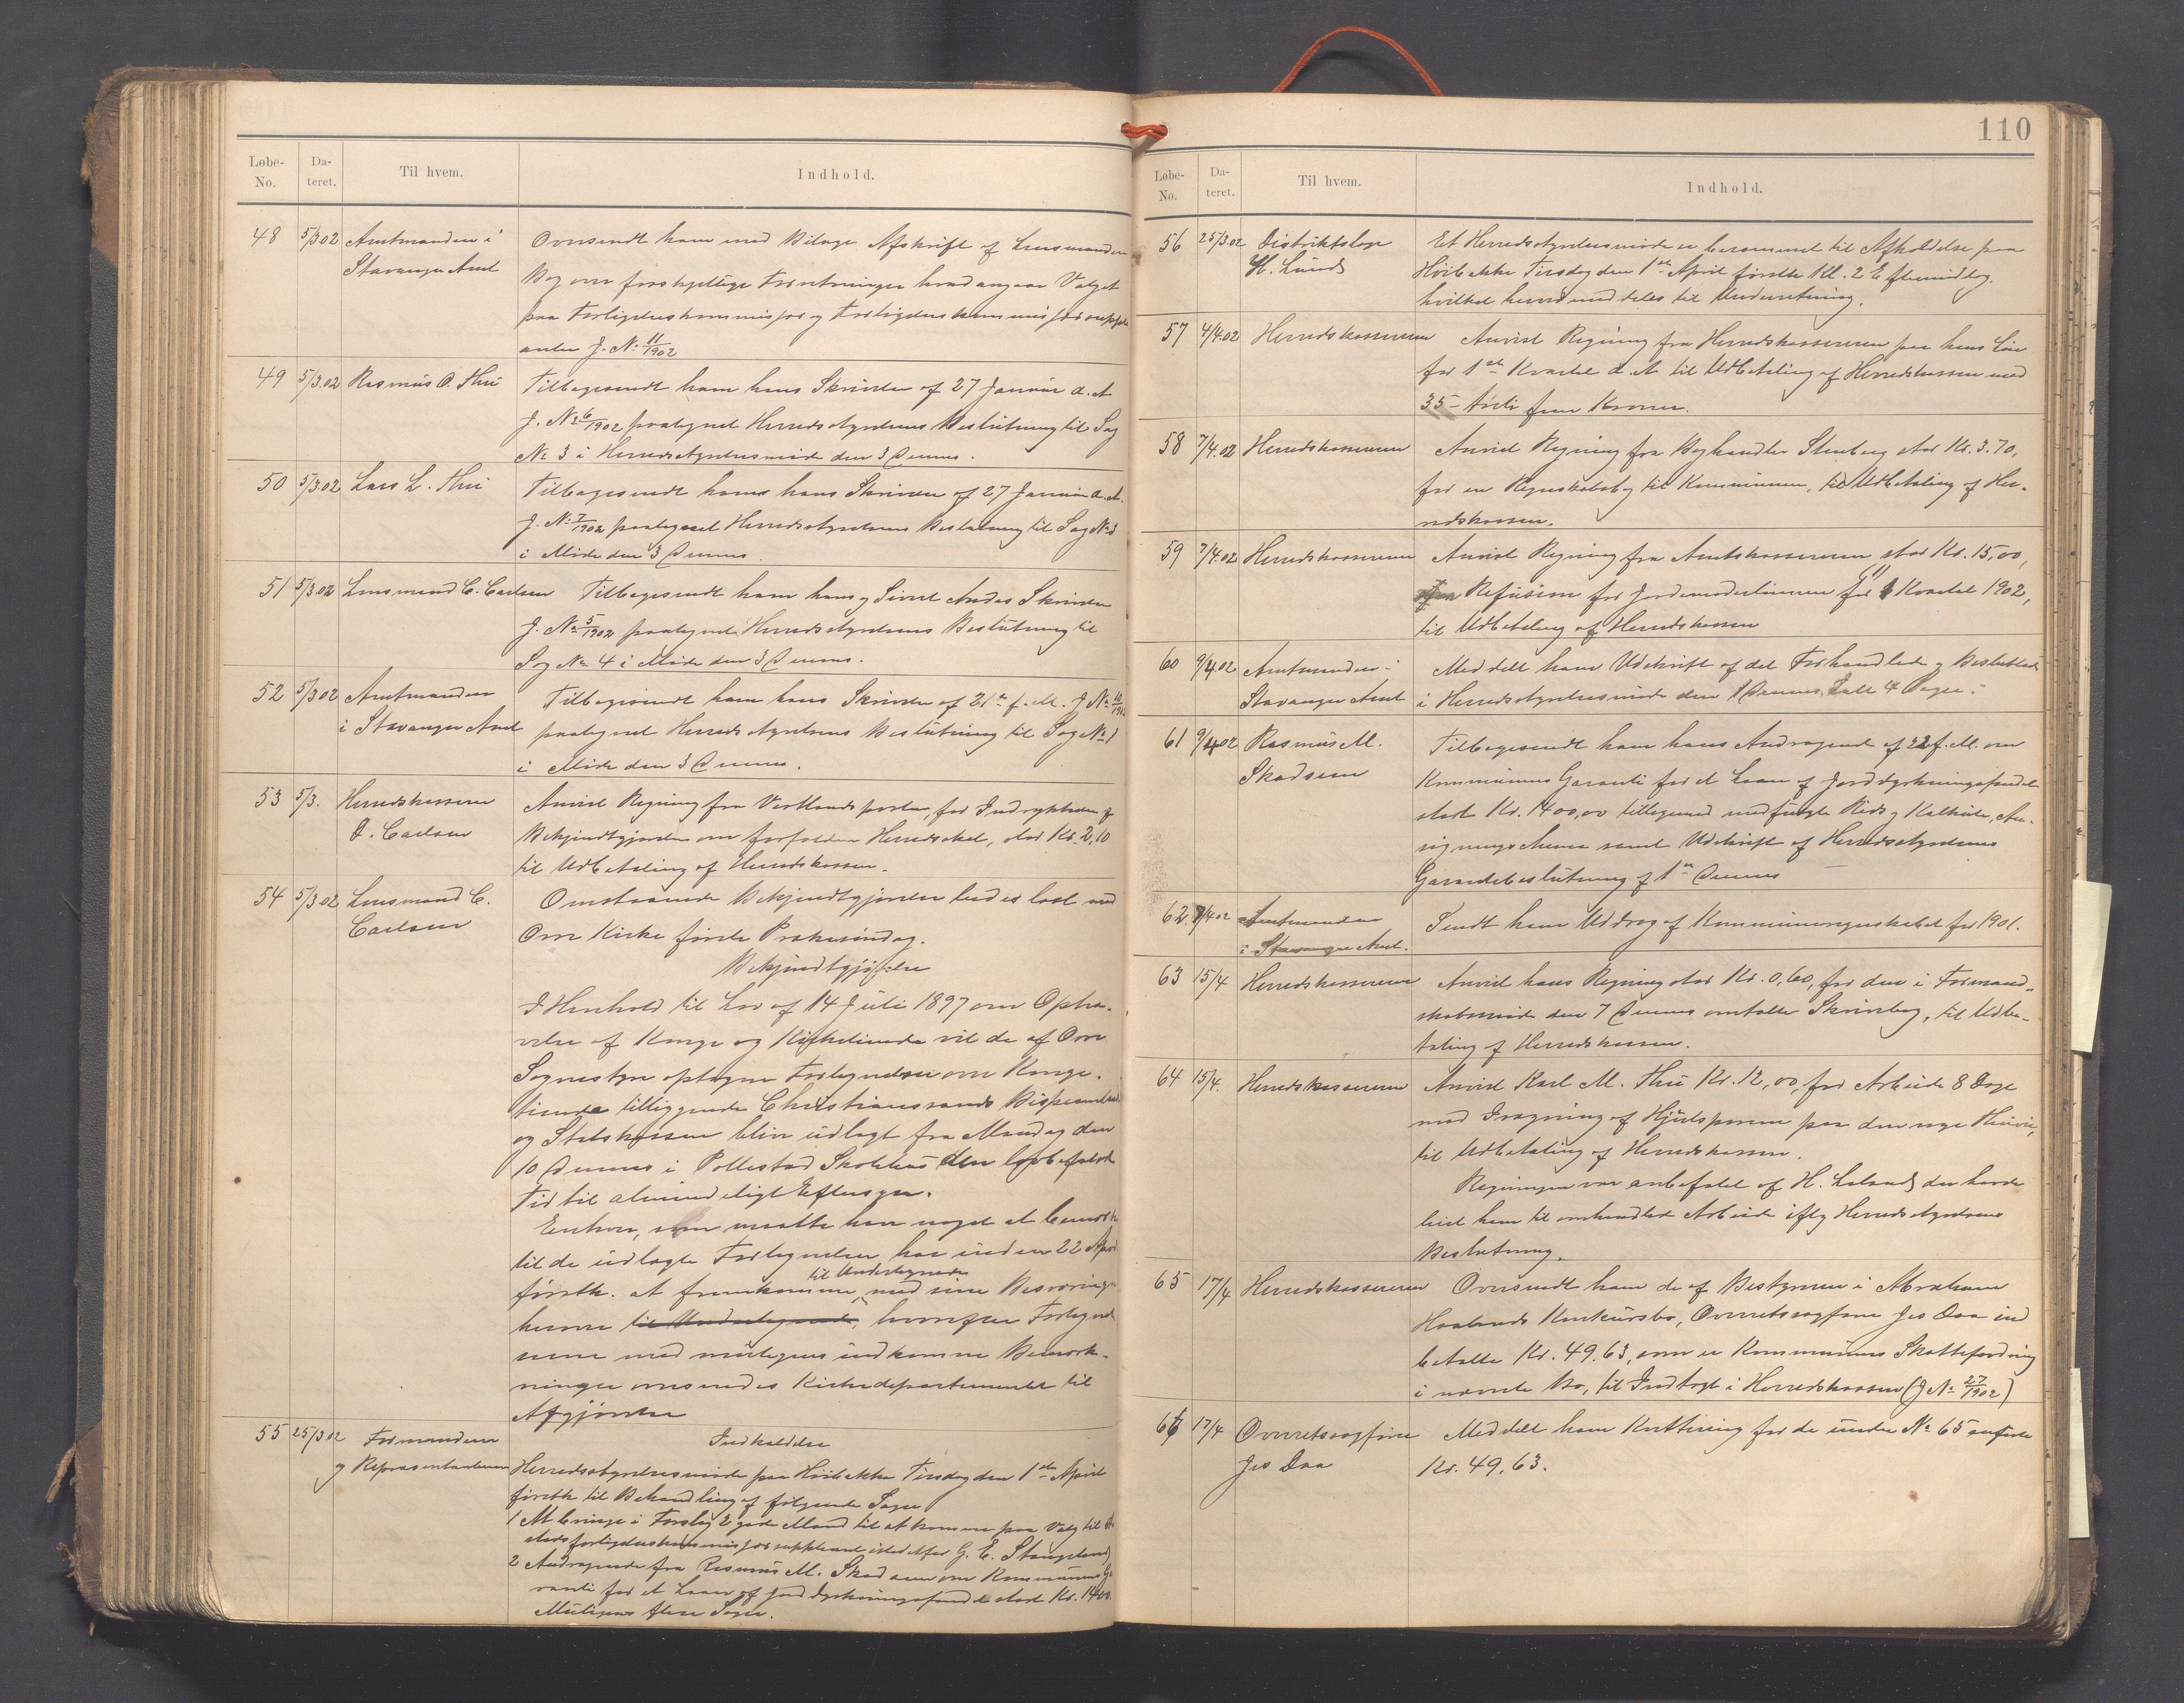 Løbe-No. Da-teret. Til hvem. Indhold.
48 5/3 02 Amtmanden i Stavanger Amt
Oversendt ham med Bilage Afskrift af Lensmandens
Bog over forskjellige Forretninger hvad angaar Valget
paa Forligelseskommissær og Forligelseskommissærsuppl-
anter J. № 11/1902
49 5/3.02 Rasmus O. Thu
Tilbagesendt ham hans Skrivelse af 27 Januar d. A
J. № 6/1902 paategnet Herredsstyrelsens Beslutning til Sag
№ 3 i Herredsstyrelsesmøde den 3 Dennes.
50 5/3.02 Lars L. Thu
Tilbagesendt ham hans Skrivelse af 27 Januar d. A.
J. № 7/1902 paategnet Herredsstyrelsens Beslutning til Sag № 3
i Møde den 3 Dennes.
51 5/3.02 Lensmand C. Carlsen
Tilbagesendt ham hans og Sivert Andas Skrivelse
J. № 5/1902 paategnet Herredsstyrelsens Beslutning til
Sag № 4 i Møde den 3 Dennes.
52 5/3 02 Amtmanden i Stavanger Amt
Tilbagesendt ham hans Skrivelse af 21de f. M. J № 10/1902
paategnet Herredsstyrelsens Beslutning til Sag № 1
i Møde den 3 Dennes.
53 5/3. Herredskasserer O. Carlsen
Anvist Regning fra Vestlandsposten, for Indrykkelse af
Bekjendtgjørelse om forfalden Herredsskat, stor Kr. 2,10
til Udbetaling af Herredskassen.
54 5/3 02 Lensmand C. Carlsen
Omstaaende Bekjendtgjørelse bedes læst ved
Orre Kirke første Prækesøndag.
Bekjendtgjørelse
I Henhold til Lov af 14 Juli 1897 om Ophæ-
velse af Konge og Kirketiende vil de af Orre
Sognestyre optagne Fortegnelser over Konge-
tiende tilliggende Christianssands Bispeembede
og Statskassen blive udlagt fra Mandag den
10 Dennes i Pollestad Skolehus den lovbefalede
Tid til almindeligt Eftersyn.
Enhver, som maatte have noget at bemærke
til de udlagte Fortegnelser har inden 22 April
førstk. at fremkomme til Undertegnede med sine Besværinger
herover til Undertegnede, hvorefter Fortegnel-
serne med muligens indkomne Bemærk-
ninger oversendes Kirkedepartementet til
Afgjørelse
55 25/3 02 Formændene og Repræsentanterne
Indkaldelse
Herredsstyrelsesmøde paa Høibakke Tirsdag den 1ste April
førstk til Behandling af følgende Sager
1 At bringe i Forslag 2 gode Mænd til at komme paa Valg til
Forligelseskommissærsuppleant istedetfor G. E. Stangeland
2 Andragende fra Rasmus M. Skadsem om Kommunens Ga-
ranti for et Laan af Jorddyrkningsfondet stort Kr. 1400
Muligens flere Sager.
110
Løbe-No. Da-teret. Til hvem. Indhold.
56 25/3 02 Distriktslæge H. Lunds
Et Herredsstyrelsesmøde er berammet til Afholdelse paa
Høibakke Tirsdag den 1ste April førstk Kl. 2 Eftermiddag.
hvilket herved meddeles til Underretning.
57 4/4.02 Herredskassereren
Anvist Regning fra Herredskassereren paa hans Løn
for 1ste Kvartal d. A. til Udbetaling af Herredskassen med
35 - tretifem Kroner.
58 7/4.02 Herredskassereren
Anvist Regning fra Boghandler Stenberg stor Kr. 3.70,
for en Regnskabsbog til Kommunen, til Udbetaling af Her-
redskassen.
59 7/4.02 Herredskassereren
Anvist Regning fra Amtskassereren stor Kr. 15,00,
Refusion for Jordemoderlønnen for 1 Kvartal 1902,
til Udbetaling af Herredskassen
60 9/4 02 Amtmanden i Stavanger Amt
Meddelt ham Udskrift af det Forhandlede og Besluttede
i Herredsstyrelsesmøde den 1 Dennes. Ialt 4 Sager.
61 9/4 02 Rasmus M. Skadsem
Tilbagesendt ham hans Andragende af 22 f. M. om
Kommunens Garanti for et Laan af Jorddyrkningsfondet
stort Kr. 1400,00 tilligemed medfulgte Rids og Kalkule, An-
søgningsskema samt Udskrift af Herredsstyrelsens
Garantibeslutning af 1ste Dennes
62. 9/4 02 Amtmanden i Stavanger Amt.
Sendt ham Uddrag af Kommuneregnskabet for 1901.
63 15/4 Herredskassereren
Anvist hans Regning stor Kr. 0,60, for den i Formand-
skabsmøde den 7 Dennes omtalte Skrivebog, til Udbe-
taling af Herredskassen.
64 15/4. Herredskassereren
Anvist Karl M. Thu Kr. 12,00, for Arbeide 8 Dage
med Iragning af Hjulsporene paa den nye Heivei,
til Udbetaling af Herredskassen.
Regningen var anbefalet af H. Laland, der havde
leiet ham til omhandlet Arbeide ifølg Herredsstyrelsens
Beslutning.
65 17/4 Herredskassereren
Oversendt ham de af Bestyreren i Abraham
Haalands Konkursbo, Overretssagfører Jes Daa ind
betalte Kr. 49.63, som er Kommunens Skattefordring
i nævnte Bo, til Indtægt i Herredskassen (J № 27/1902)
66 17/4 Overretssagfører Jes Daa
Meddelt ham Kvittering for de under № 65 anførte
Kr. 49.63.